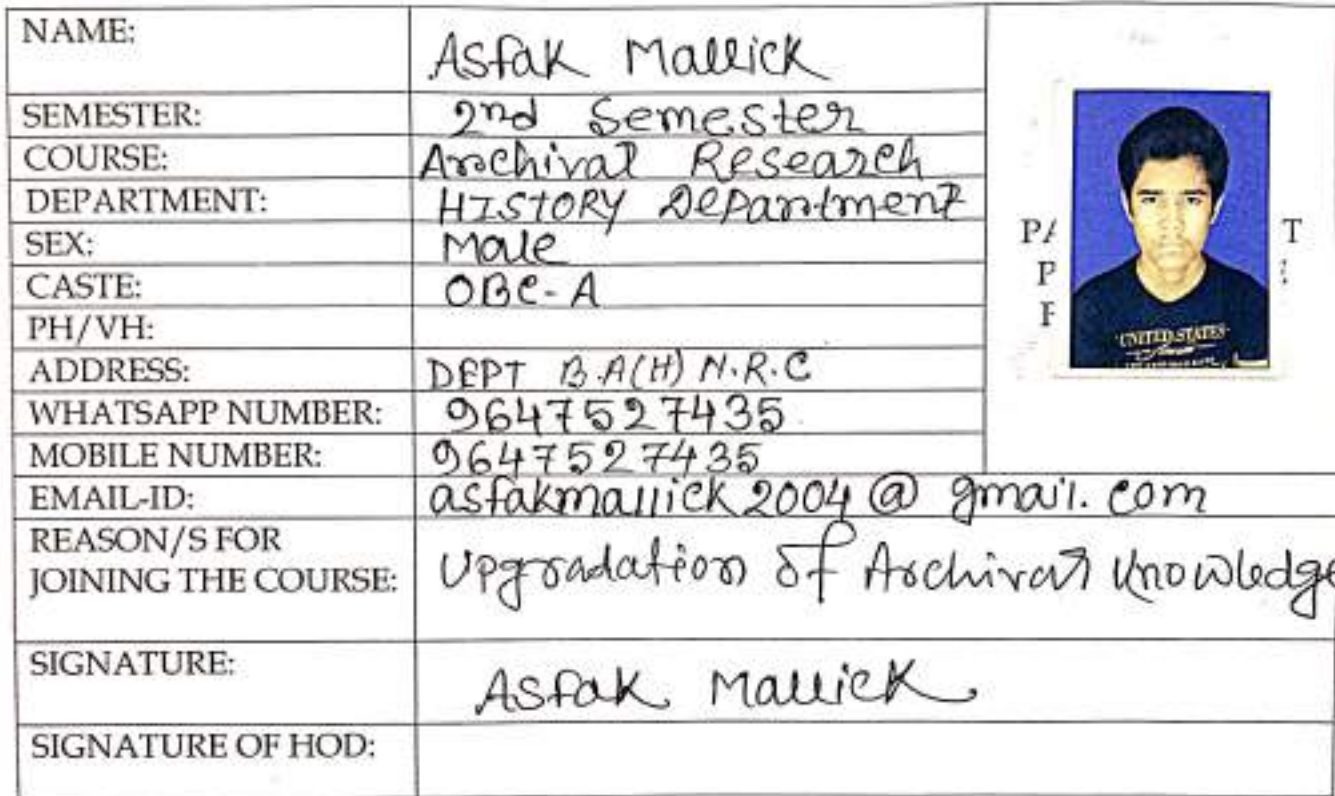 NAME: Asfak Mallick
SEMESTER: 2nd Semester
COURSE: Archival Research
DEPARTMENT: HISTORY Department
SEX: Male
CASTE: OBC-A
PH/VH:
ADDRESS: DEPT B.A(H) N.R.C
WHATSAPP NUMBER: 9647527435
MOBILE NUMBER: 9647527435
EMAIL-ID: asfakmallick2004@gmail.com
REASON/S FOR
JOINING THE COURSE: Upgradation of Archival knowledge
SIGNATURE: Asfak Mallick
SIGNATURE OF HOD:
PA T
P
F
UNITED STATES